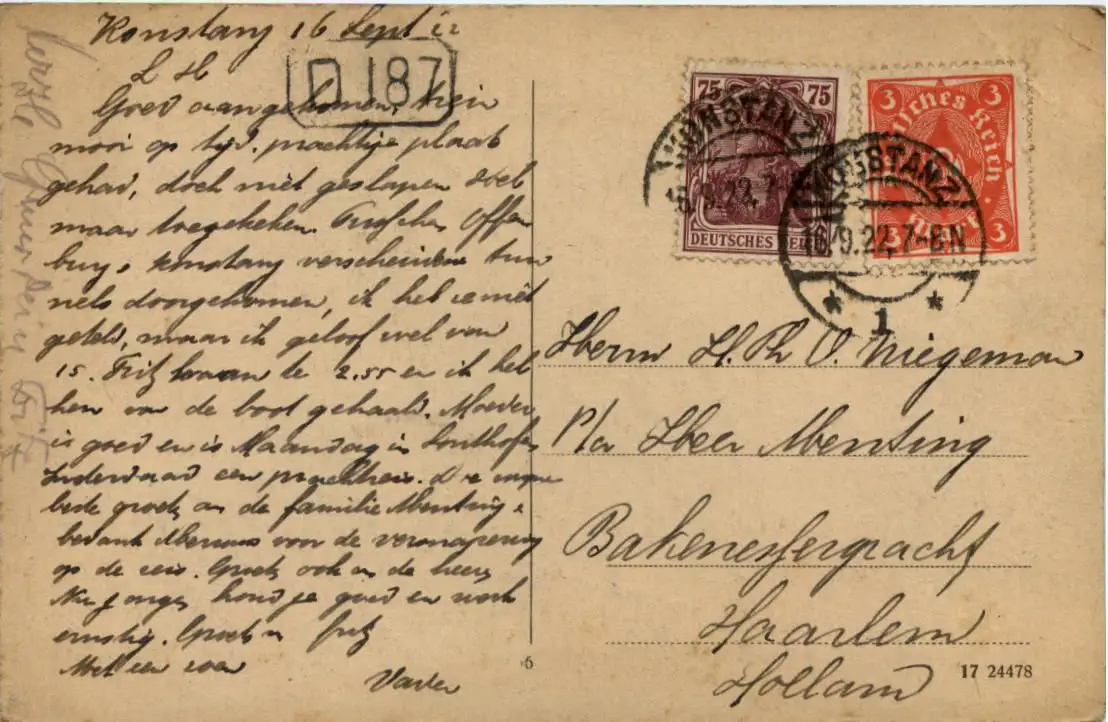 Konstanz 16 Sept 22
L H
D 187
Goed aangekomen, trein
mooi op tijd. prachtige plaats
gehad, doch niet geslapen
maar toegekeken. Tusschen Offen
burg Konstanz verscheidene tun
nels doorgekomen, ik heb ze niet
geteld, maar ik geloof wel van
15. Fritz kwam te 2.55 en ik heb
hen van de boot gehaald. Moeder
is goed en is Maandag in Sonthofen
Inderdaad een prachtreis. De
beste groeten aan de familie Menting &
bedank Mevrouw voor de versnapering
op de reis. Groeten ook
Nu jongen houd je goed en werk
ernstig. Groeten Fritz
Met een zoen
Vader
Herzl. Grüsse Dein Fritz
75 75
DEUTSCHES REICH
3 3
Deutsches Reich
3 Mark 3
KONSTANZ
16.9.22. 7-
KONSTANZ
16.9.22. 7-8 N
* 1 *
Herrn H. Ph O. Wiegeman
p/a Heer Menting
Bakenessergracht
Haarlem
Holland
6
17 24478